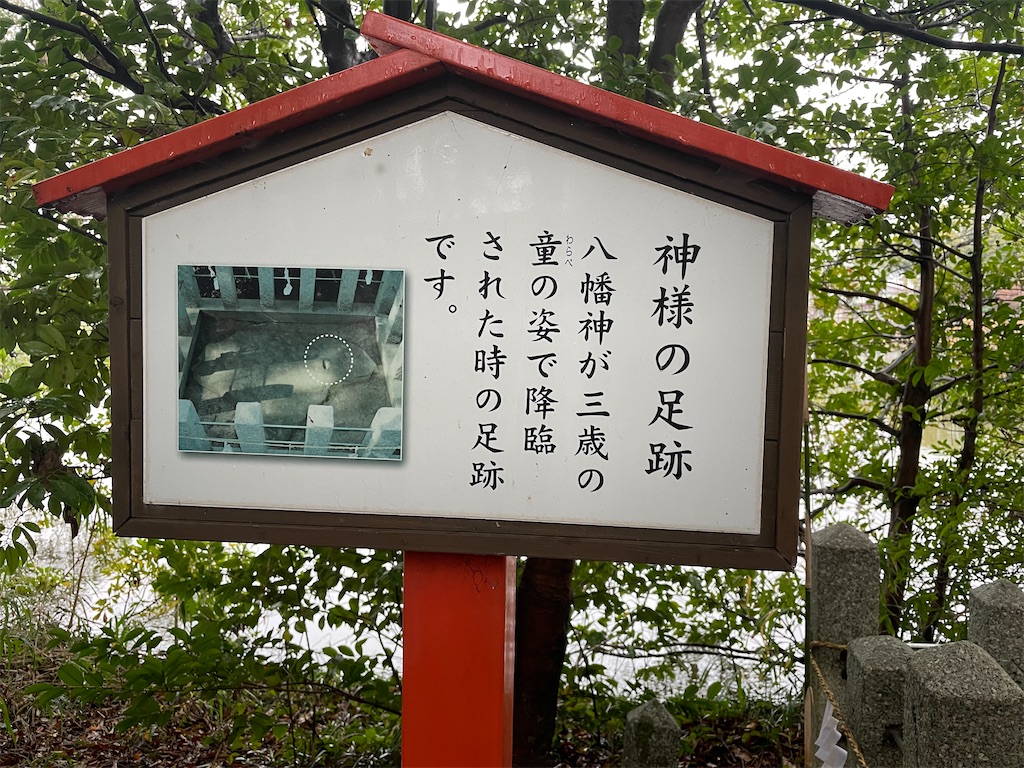 神様の足跡
八幡神が三歳の
童の姿で降臨
わらべ
された時の足跡
です。